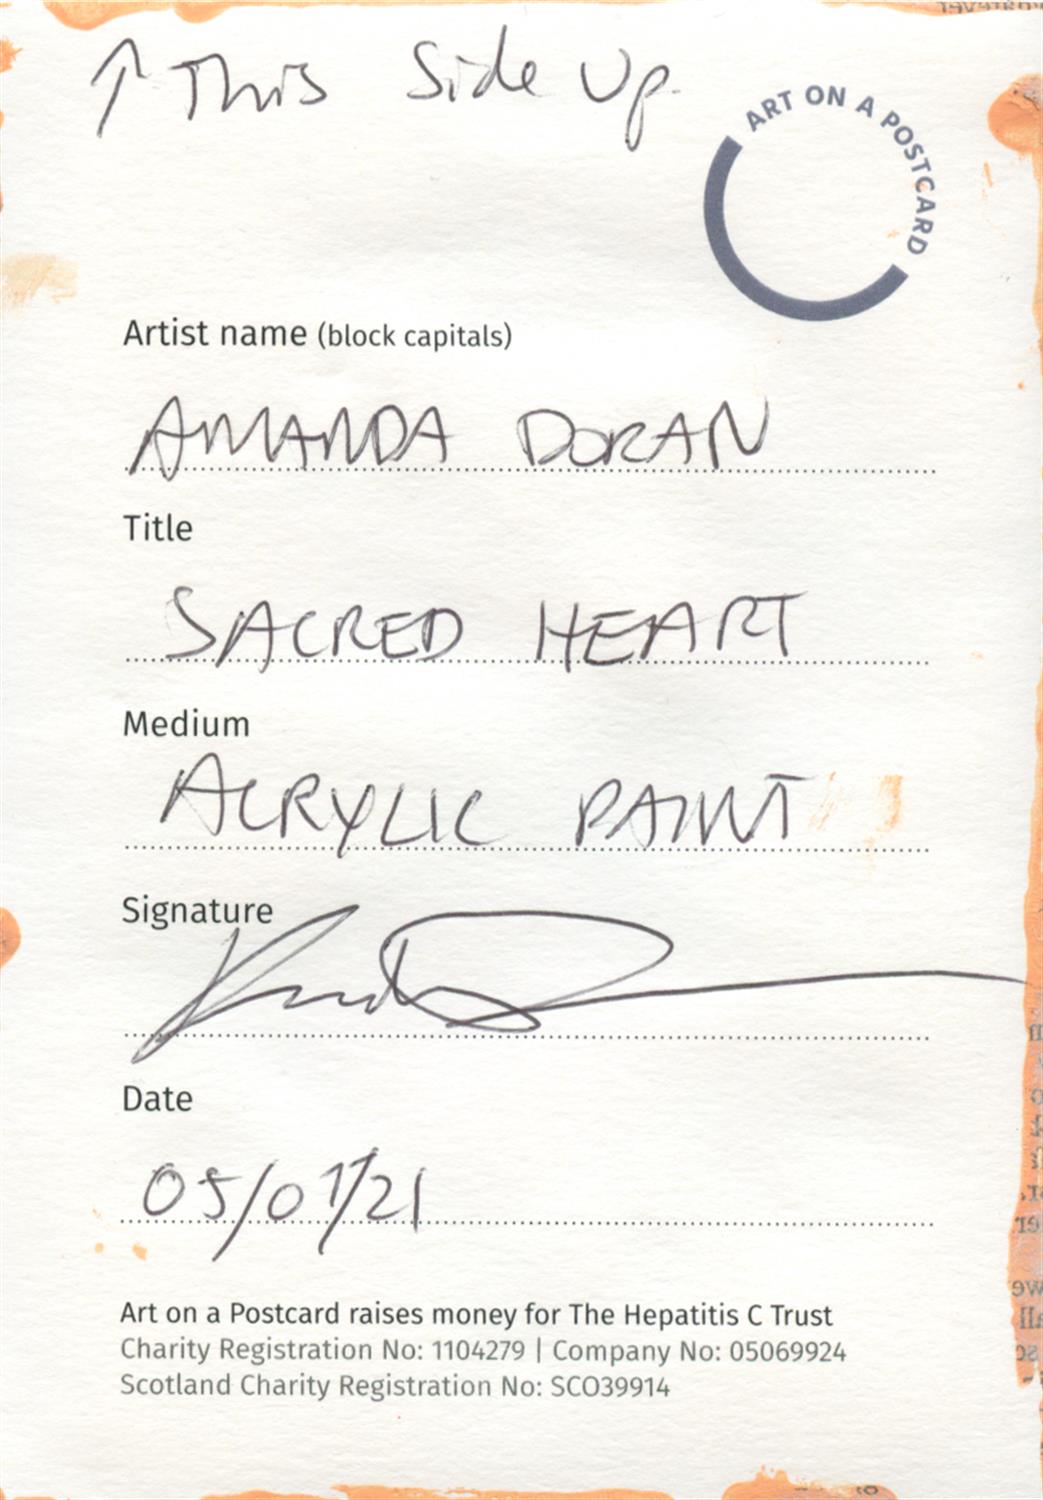 ↑ This Side Up.
ART ON A POSTCARD
Artist name (block capitals)
AMANDA DORAN
Title
SACRED HEART
Medium
ACRYLIC PAINT
Signature
Date
05/01/21
Art on a Postcard raises money for The Hepatitis C Trust
Charity Registration No: 1104279 | Company No: 05069924
Scotland Charity Registration No: SCO39914